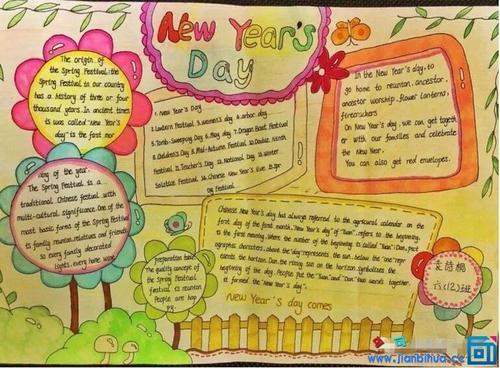 New Year's
Day
The origin of
the Spring Festival: the
Spring Festival in our country
has a history of three or four
thousand years. In ancient times
is was called "New Year's
day" is the first mor
ning of the year.
The Spring Festival is a
traditional Chinese festival with
multi-cultural significance. One of the
most basic forms of the Spring Festival
is family reunion, relatives and friends
to every family decorated
lights, every home
1. New Year's Day
2. Lantern Festival 3. women's day 4. arbor day
5. Tomb-Sweeping Day 6. May day 7. Dragon Boat Festival
8. Children's Day 9. Mid-Autumn Festival 10. Double Ninth
Festival 11. Teacher's Day 12. National Day 13. winter
Solstice Festival 14. Chinese New Year's Eve 15. pr
Day Festival
In the New Year's day, to
go home to reunion, ancestor,
ancestor worship, flower lanterns,
firecrackers
On New Year's day, we can get togeth
er with our families and celebrate
the New Year.
You can also get red envelopes.
preparation have
The quality concept of
the Spring Festival
festival is reunion
People are hap
py.
Chinese New Year's day has always referred to the agricural calendar, on the
first day of the first month. "New Year's day" of "Yuan", refers to the beginning,
is the first meaning. Where the number of the beginning is called "Yuan"; Dan, pict
ographic characters, above the "day" represents the sun, below the "one" repr
esents the horizon. Dan the rising sun on the horizon, symbolizes the
beginning of the day. People put the "Yuan" and "Dan" two words together,
is formed the "New Year's day".
New Year's day comes
六(12)班
www.jianbihua.cc